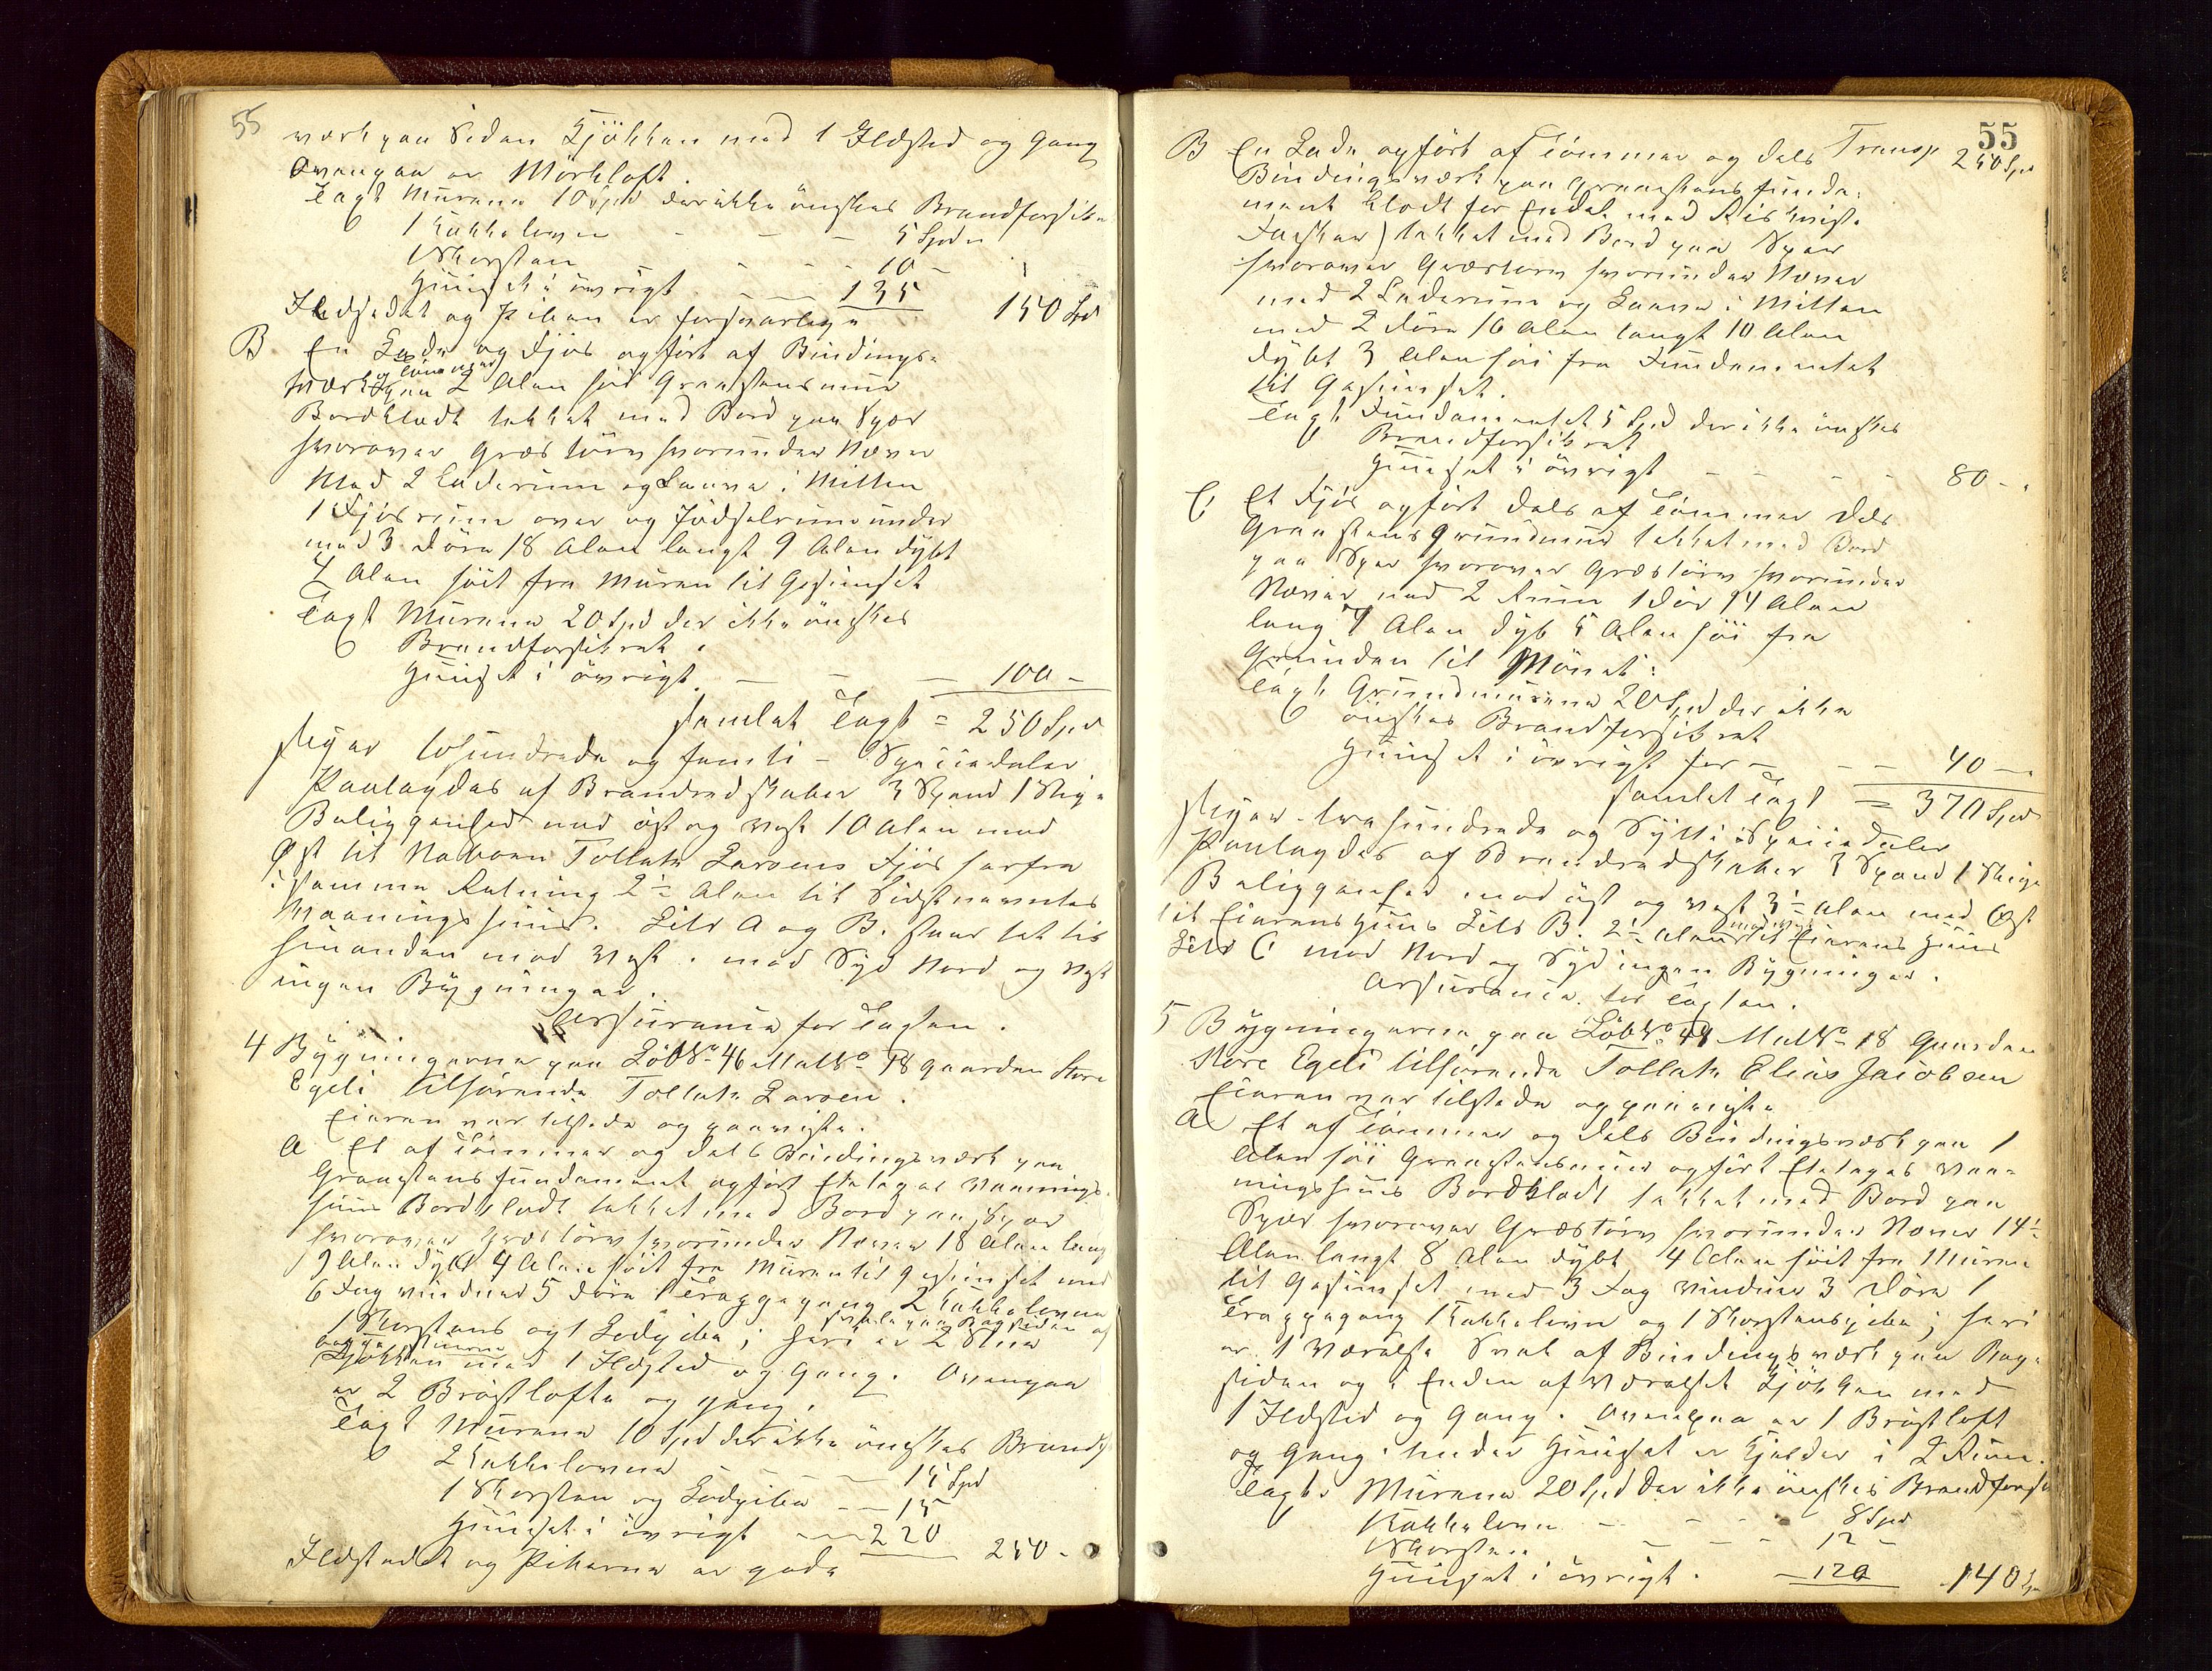 55
værk paa Siden Kjökken med 1 Ildsted og Gang
Ovenpaa er Mörkloft.
Taxt Murene 10 Spd der ikke önskes Brandforsik
1 Kakkelovn - - - 5 Spd
1 Skorsten - - - 10 -
Huuset i övrigt - - 135
Ildstedet og Piben er forsvarlige 150 Spd
B. En Lade og Fjös opfört af Bindings-
værk og Tömmer paa 2 Alen höi Graastensmuur
Bordklædt tækket med Bord paa Spær
hvorover Græstörv hvorunder Næver
Med 2 Laderum og Laave i Mitten
1 Fjösrum over og Födselrum under
med 3 Döre 18 Alen langt 9 Alen dybt
4 Alen höit fra Muren til Gesimset
Taxt Murene 20 Spd der ikke önskes
Brandforsikret.
Huuset i övrigt - - - 100 -
samlet Taxt = 250 Spd
skriver tohundrede og femti - Speciedaler
Paalagdes af Brandredskaber 3 Spand 1 Stige
Beliggenhed mod öst og vest 10 Alen mod
Öst til Naboen Tollak Larsens Fjös herfra
i samme Retning 2½ Alen til Sidstnævntes
Vaaningshuus. Litr A og B. staar tæt til
hinanden mod Vest. mod Syd Nord og Vest
ingen Bygninger.
Assurance for Taxten.
4 Bygningerne paa Löb No 46 Matr No 18 gaarden Store
Egeli tilhörende Tollak Larsen.
Eieren var tilstede og paaviste.
A Et af Tömmer og dels Bindingsværk paa
Graastensfundament opfört Etetages Vaanings-
huus Bordklædt tækket med Bord paa Spær
hvorover Græstörv hvorunder Næver 18 Alen lang
9 Alen dybt 4 Alen höit fra Muren til Gesimset med
6 Fag vinduer 5 Döre 1 Trappegang 2 Kakkelovne
1 Skorstens og 1 Lodpibe; heri er 2 Stuer
Kjökken med 1 Ildsted og Gang. Ovenpaa
er 2 Bröstlofte og gang.
Taxt Murene 10 Spd der ikke önskes Brandf
2 Kakkelovne - - - 15 Spd
1 Skorsten og Lodpibe - - 15
Huuset i övrigt - - 220
Ildstedet og Piberne er gode 250 -
55
Transp 250 Spd
B En Lade opfört af Tömmer og dels
Bindingsværk paa Graastens funda-
ment klædt for Endel med Riskvist
tækket med Bord paa Spær
hvorover Græstörv hvorunder Næver
med 2 Laderum og Laave i Mitten
med 2 Döre 16 Alen langt 10 Alen
dybt 3 Alen höi fra Fundamentet
til Gesimset.
Taxt Fundamentet 5 Spd der ikke önskes
Brandforsikret
Huuset i övrigt - - - - 80 -
C Et Fjös opfört dels af Tömmer dels
Graastens Grundmuur tækket med Bord
paa Spær hvorover Græstörv hvorunder
Næver med 2 Rum 1 Dör 14 Alen
lang 7 Alen dyb 5 Alen höi fra
Grunden til Mönet:
Taxt Grundmurene 20 Spd der ikke
önskes Brandforsikret
Huuset i övrigt for - - - 40 -
samlet Taxt = 370 Spd
skriver trehundrede og Sytti Speciedaler
Paalagdes af Brandredskaber 3 Spand 1 Stige
Beliggenhed mod öst og vest 3½ Alen mod Öst
til Eierens Huus Litr B. 2½ Alen mod Vest til Eierens Huus
Litr C mod Nord og Syd ingen Bygninger.
Assurance for Taxten.
5 Bygningerne paa Löb No 47 Matr No 18 Gaarden
Store Egeli tilhörende Tollak Elias Jacobsen
Eieren var tilstede og paaviste
A Et af Tömmer og dels Bindingsværk paa 1
Alen höi Graastensmuur opfört Etetages Vaa-
ningshuus Bordklædt tækket med Bord paa
Spær hvorover Græstörv hvorunder Næver 14½
Alen langt 8 Alen dybt 4 Alen höit fra Muren
til Gesimset med 3 Fag vinduer 3 Döre 1
Trappegang 1 Kakkelovn og 1 Skorstenspibe; heri
er 1 Værelse Sval af Bindingsværk paa Bag-
siden og i Enden af Værelset Kjökken med
1 Ildsted og Gang. Ovenpaa er 1 Bröstloft
og Gang. under Huuset er Kjelder i 2 Rum.
Taxt. Murene 20 Spd der ikke önskes Brandforsi
1 Kakkelovn - - - - 8 Spd
1 Skorsten - - - 12 -
Huuset i övrigt. - 120 140 Sp